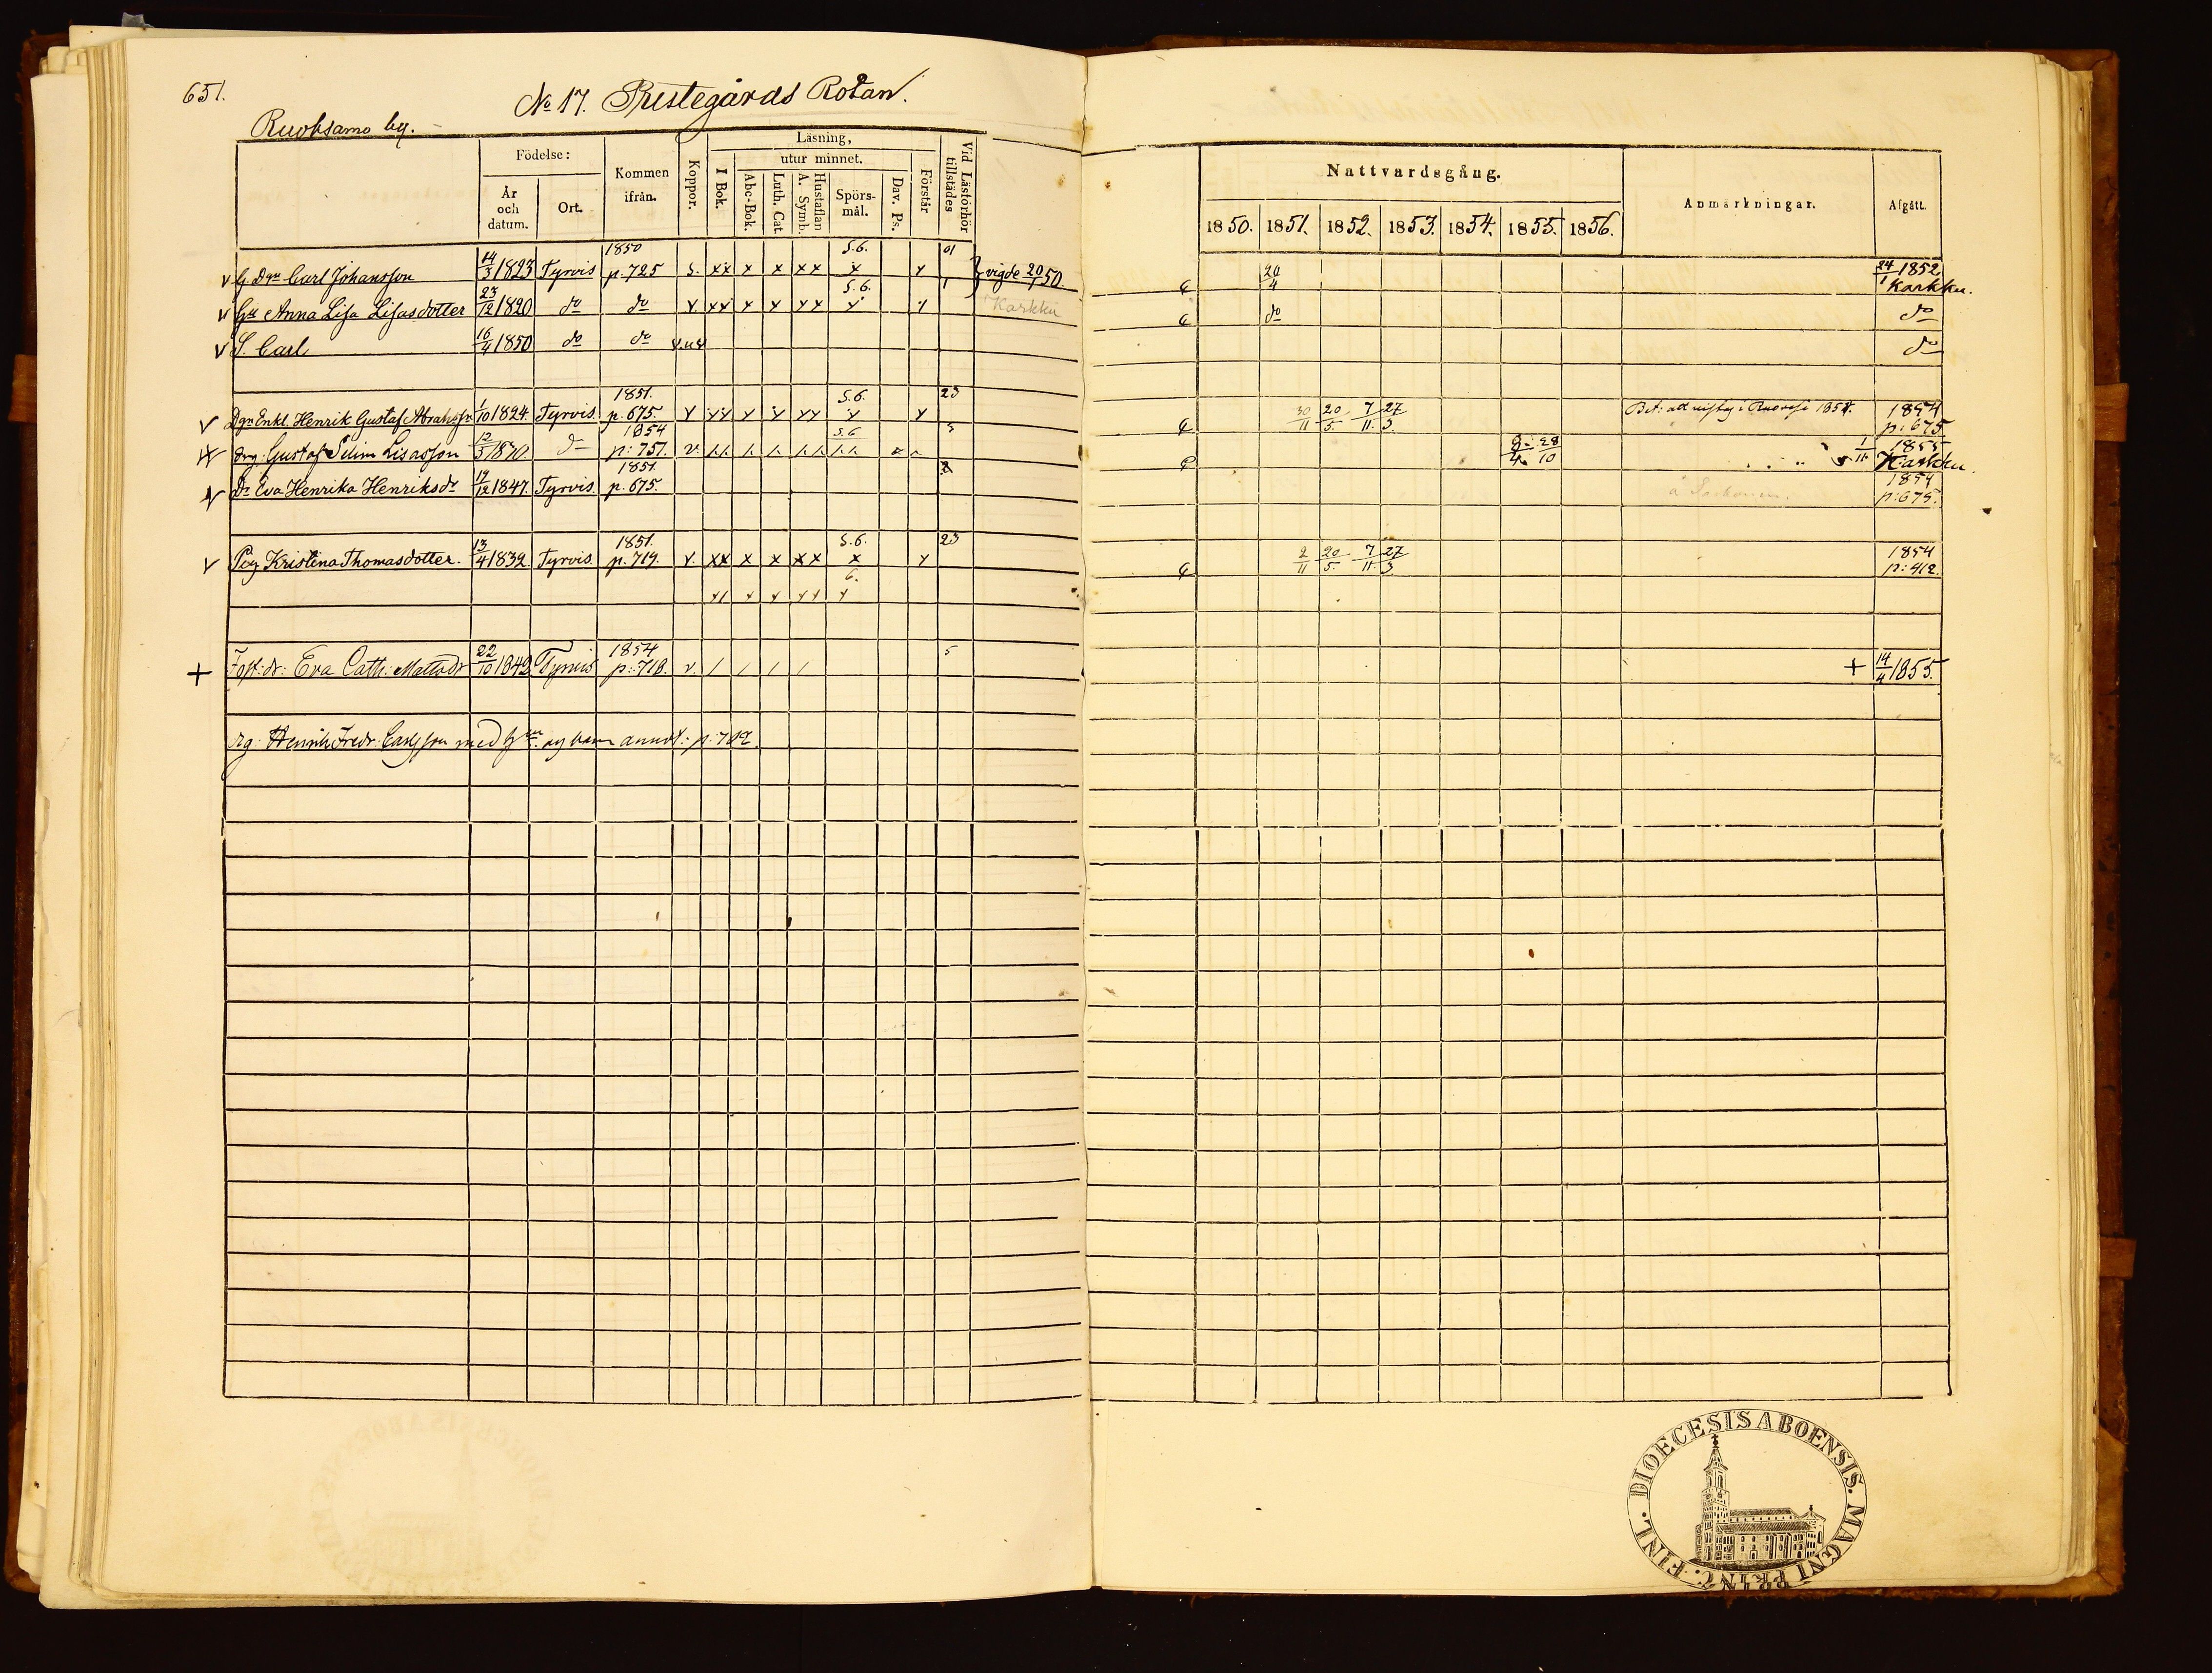 651.
No 17. Prestegårds Rotan.
Ruoksamo by.
Födelse:
År och datum.
Ort.
Kommen ifrån.
Koppor.
Läsning,
I Bok.
utur minnet.
Abc-Bok.
Luth. Cat.
Hustaflan A. Symb.
Spörs-mål.
Dav. Ps.
Förstår
Vid Läsförhör tillstädes
Nattvardsgång.
1850. 1851. 1852. 1853. 1854. 1855. 1856.
Anmärkningar.
Afgått.
1850 S.6. 01
v G. Dgn Carl Johansson 14/3 1823 Tyrvis p. 725 S. xx x x xx x x 1 } vigde 20/1 50. 20/4 24/1 1852 Karkku.
S.6.
v Hu Anna Lisa Lisasdotter 23/12 1820 do do v. xx x x xx x x Karkku do do
v S. Carl 16/4 1850 do do v.u do
1851. S.6. 23
v Dgn Enkl. Henrik Gustaf Abrahsson 1/10 1824. Tyrvis p. 675. v xx x x xx x x 30/11 20/5. 7/11. 27/3. Bet: att vistas i Ruovesi 1854. 1854 p: 675
1854 S.6 5
Drg: Gustaf Selim Lisasson 12/3 p: 751. v. 8/4 28/10 1/11 1855 Karkku
1851.
Dr Eva Henrika Henriksdr 19/12 1847. Tyrvis. p. 675. 1854 p: 675.
1851. S.6. 23
v Pig Kristina Thomasdotter. 13/4 1832. Tyrvis. p. 719. v. xx x x xx x x 2/11 20/5. 7/11. 27/3 1854 p: 412.
6.
1854 5
+ Fost: dr: Eva Cath: Mattsdr 22/10 1842 Tyrvis p: 718. v. / / / / + 14/4 1855.
Drg Henrik Fredr: Carlsson med hu och barn annot: p. 702.
DIOECESIS ABOENSIS. MAGNI PRINC. FINL.